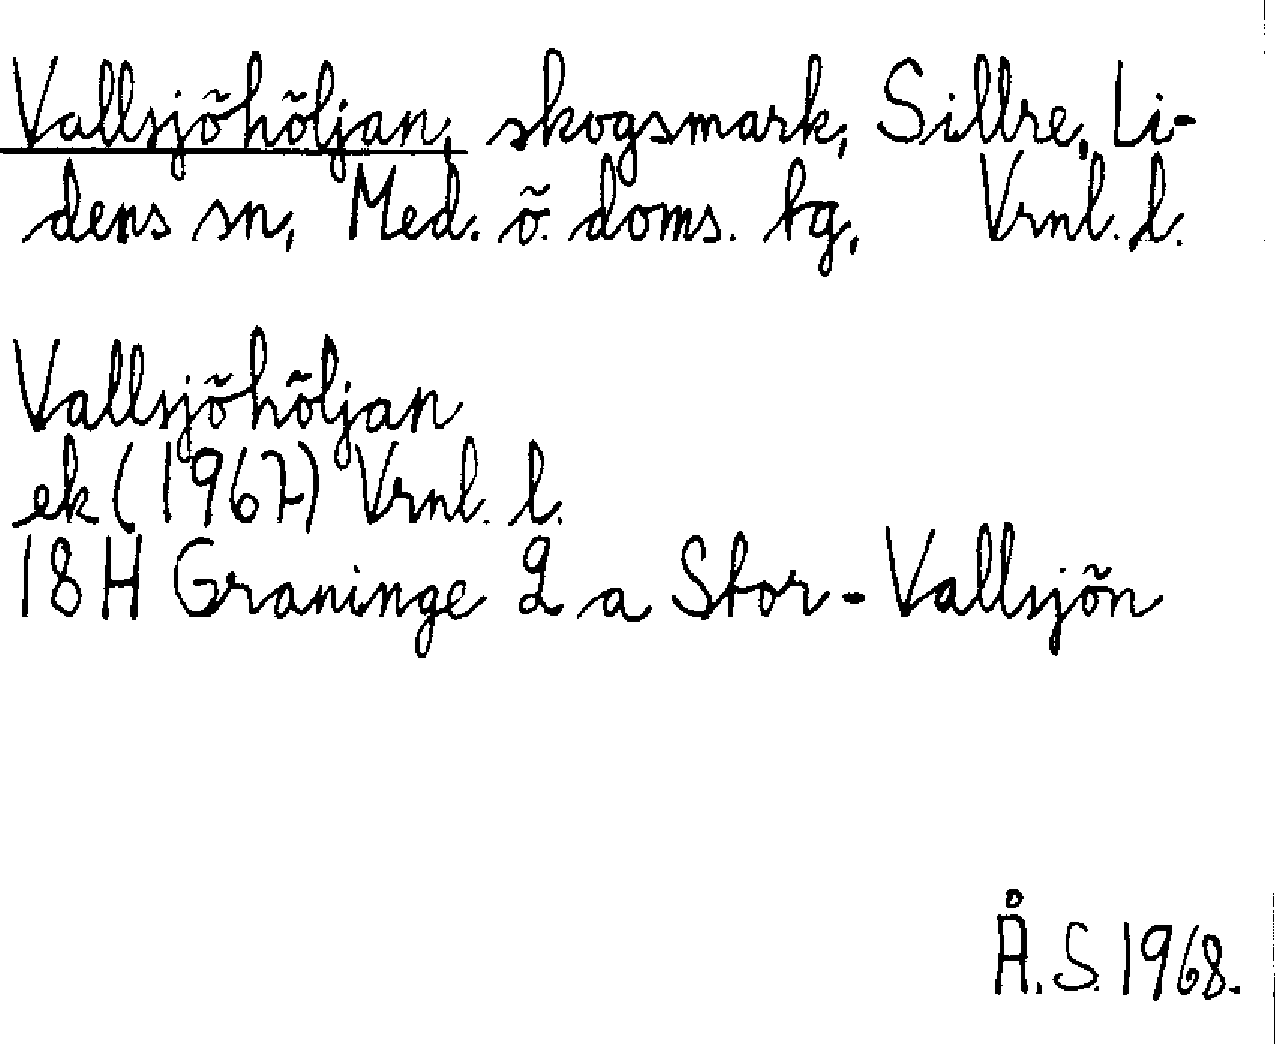 Vallsjõhõljan, skogsmark, Sillre, Li-
dens sn, Med. õ. doms. tg, Vrnl. l.
Vallsjõhõljan
ek (1967) Vrnl. l.
18H Graninge 2 a Stor-Vallsjõn
Å. S. 1968.